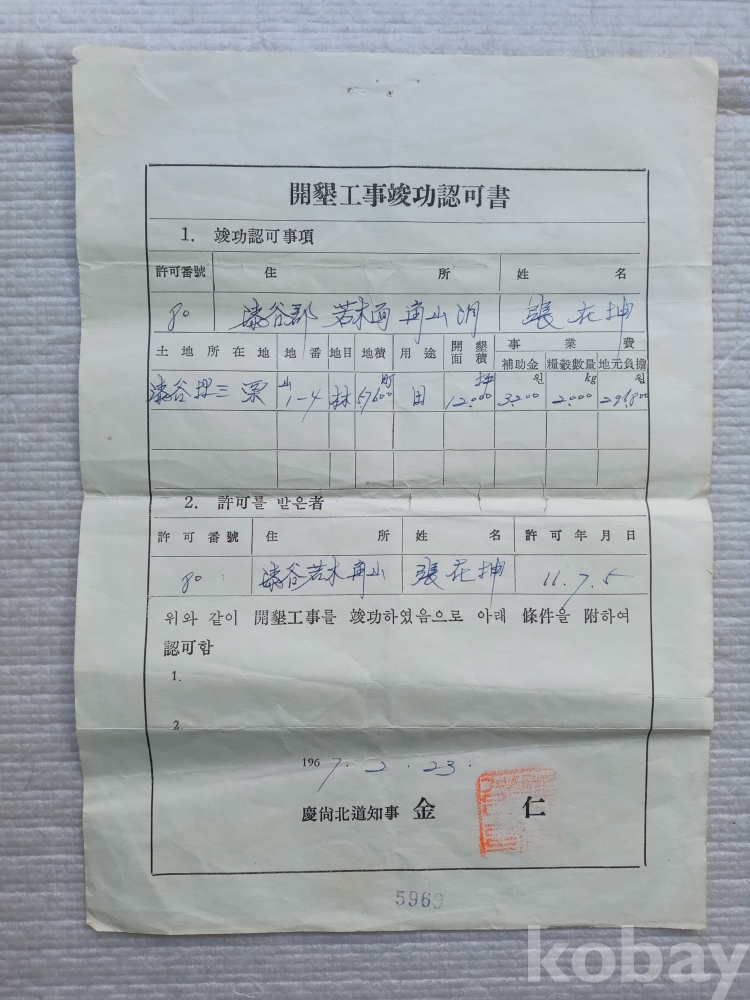 開墾工事竣功認可書
1. 竣功認可事項
許可番號 住 所 姓 名
80 漆谷郡 若木面 張 在
土地所在地 地番 地目 地積 用途 開墾面積 事業費
補助金 糧穀數量 地元負擔
漆谷 山1-4 林 町 57600 田 坪 12.000 원 3200 kg 2000 원 296.800
2. 許可를 받은者
許可番號 住 所 姓 名 許可年月日
80 漆谷 若木 張 在 11.7.5
위와 같이 開墾工事를 竣功하였음으로 아래 條件을 附하여
認可함
1.
2
1967. 2. 23.
慶尙北道知事 金 仁
5969
kobay